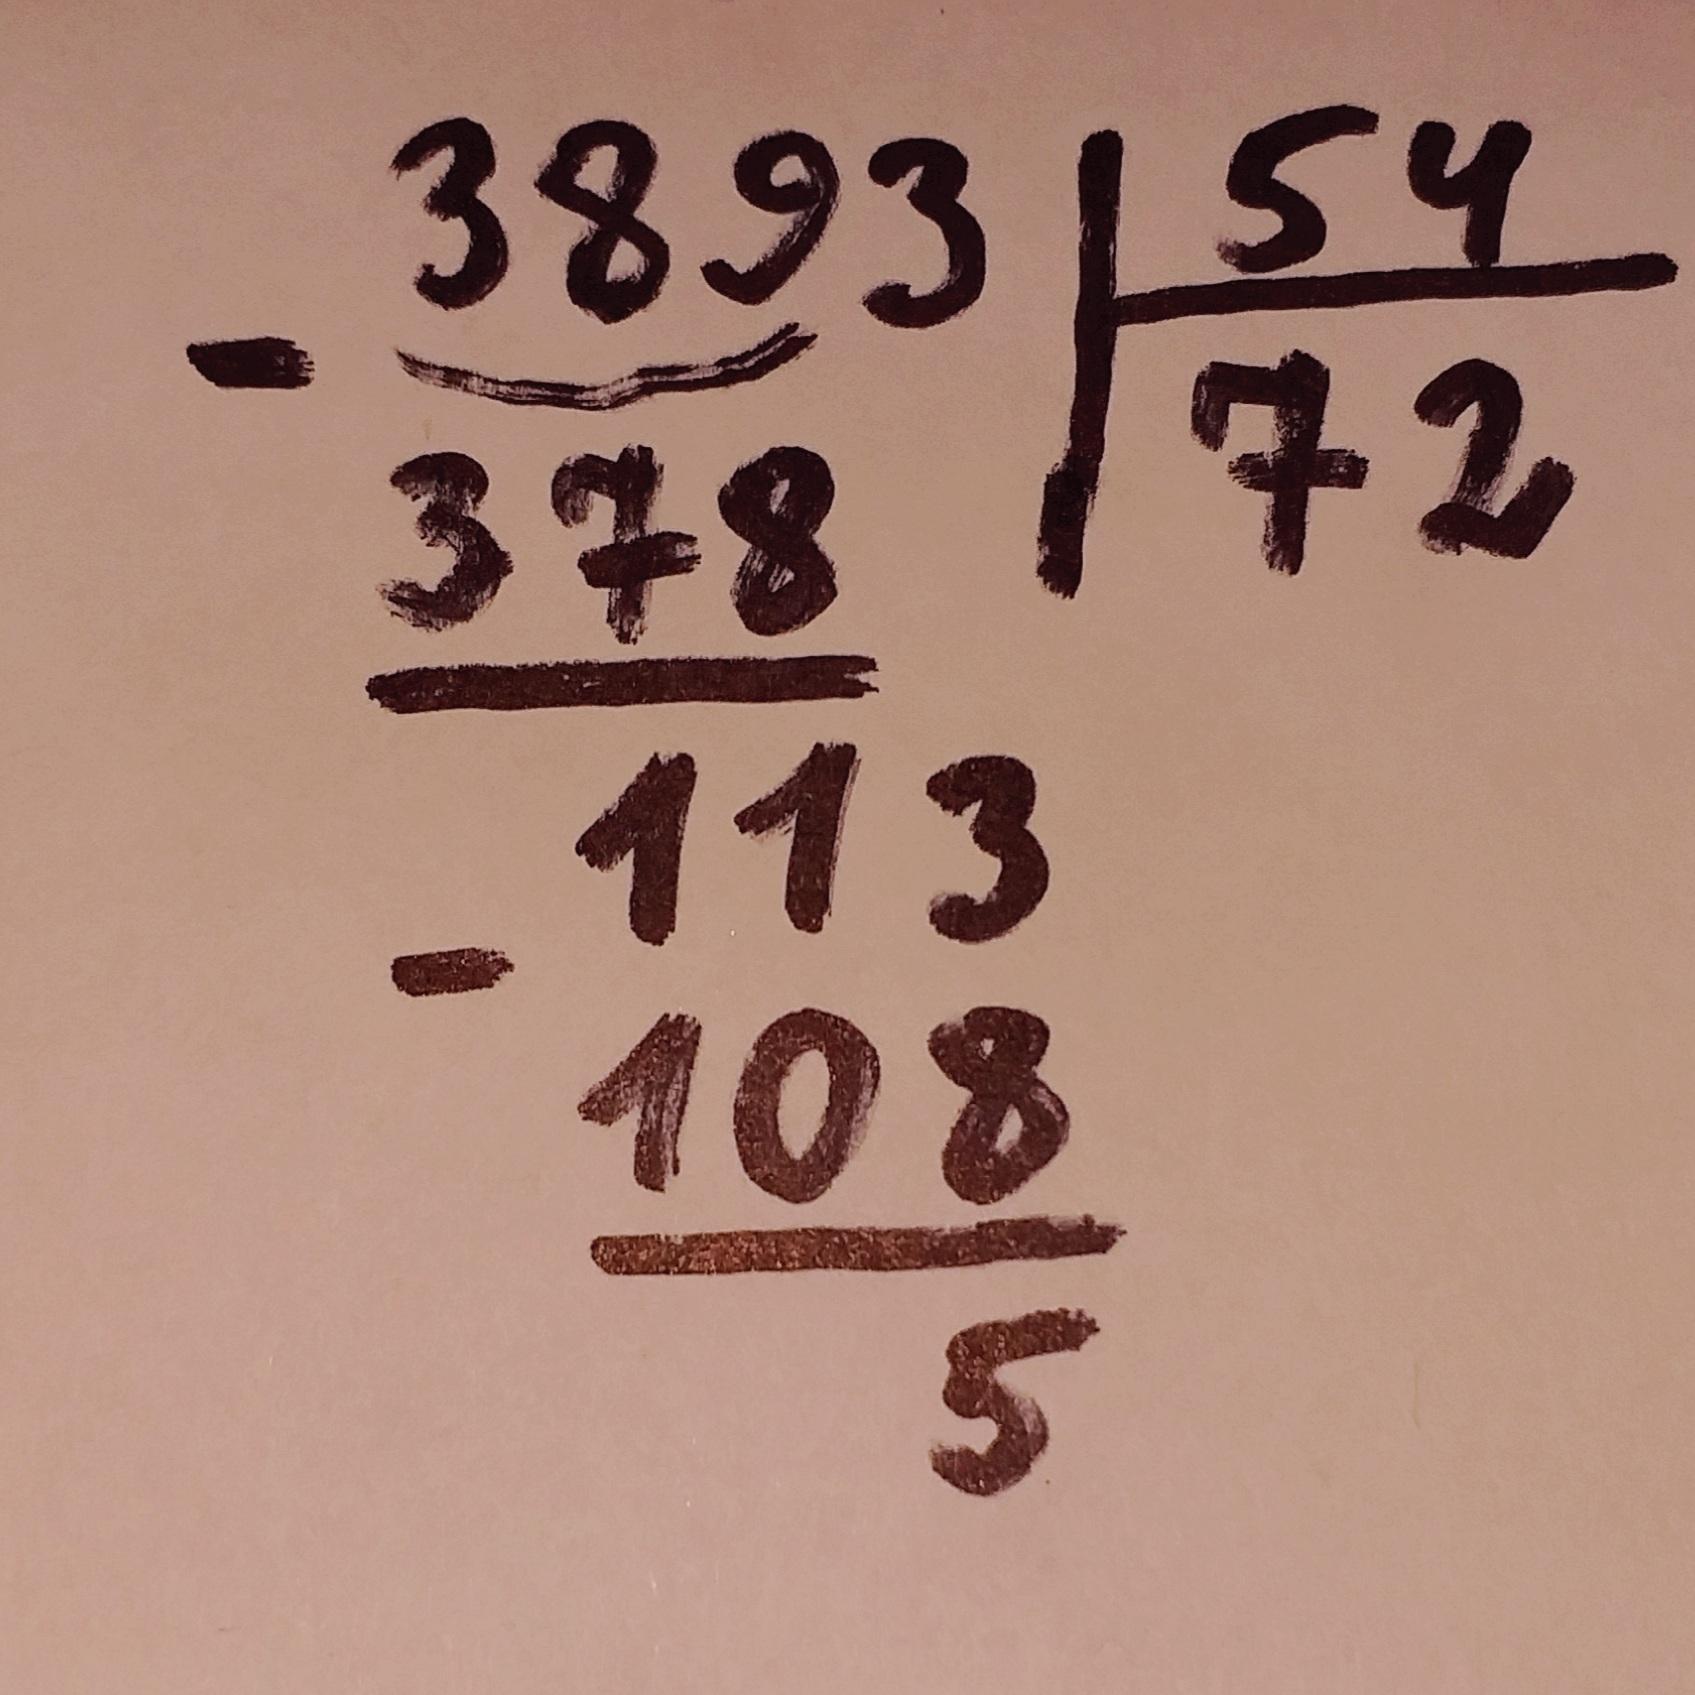 3893 | 54
- 72
378
113
-
108
5